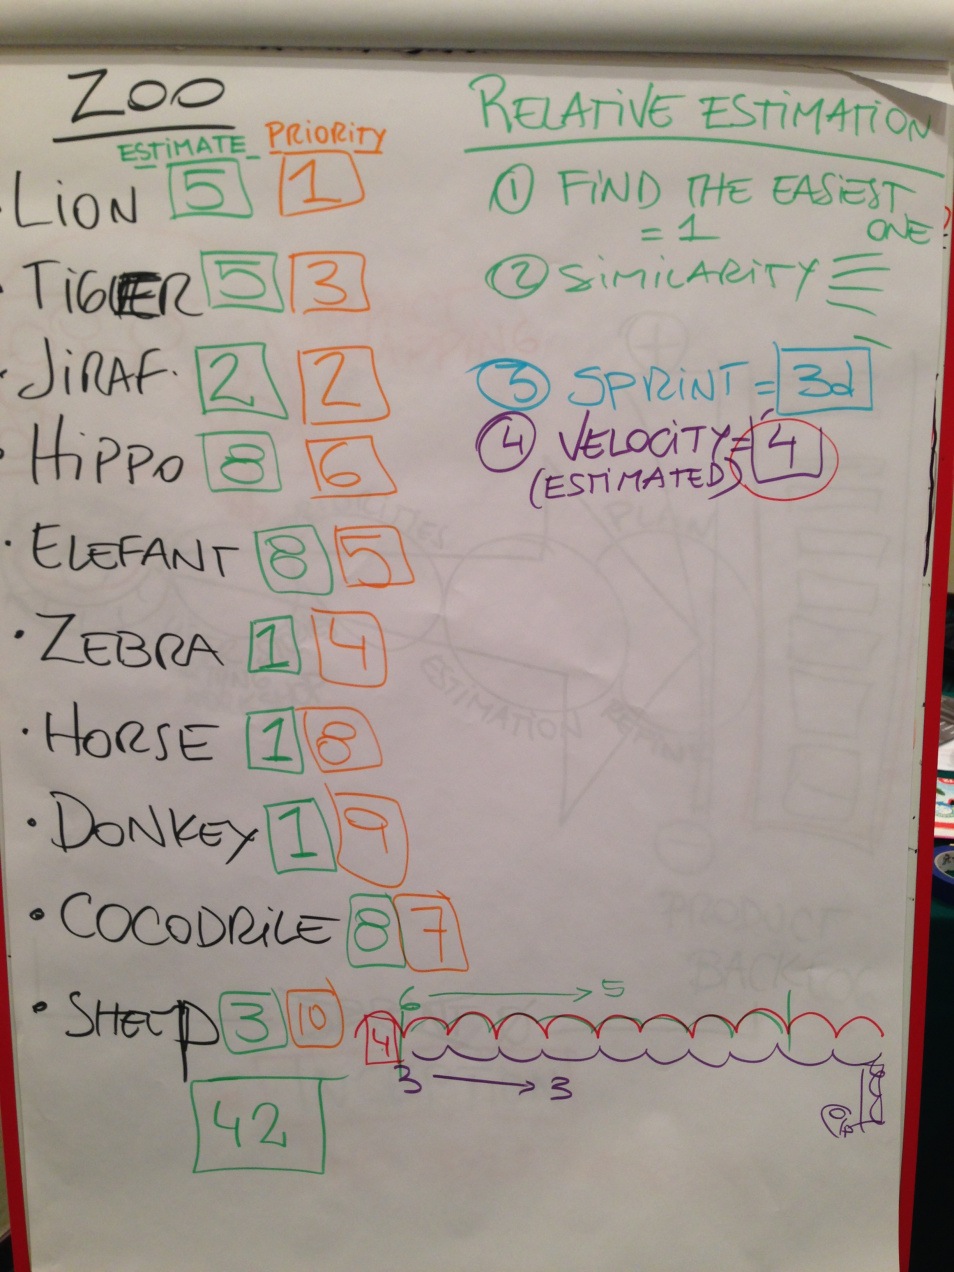 ZOO
ESTIMATE PRIORITY
LION 5 1
TIGER 5 3
JIRAF. 2 2
HIPPO 8 6
ELEFANT 8 5
ZEBRA 1 4
HORSE 1 8
DONKEY 1 9
COCODRILE 8 7
SHEEP 3 10
42
RELATIVE ESTIMATION
1 FIND THE EASIEST
= 1 ONE
2 SIMILARITY
3 SPRINT = 3d
4 VELOCITY = 4
(ESTIMATED)
6 → 5
4
3 → 3
PLAN
ESTIMATION
PRODUCT
BACKLOG